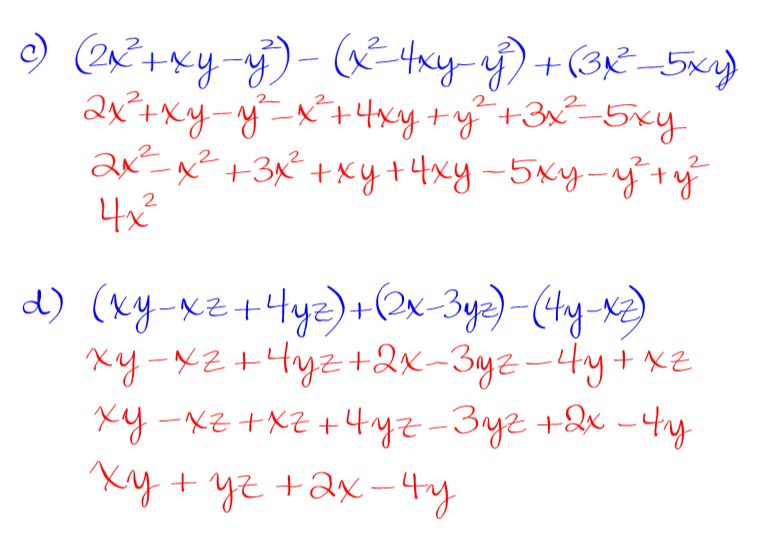 c) (2x²+xy-y²)-(x²-4xy-y²)+(3x²-5xy)
2x²+xy-y²-x²+4xy+y²+3x²-5xy
2x²-x²+3x²+xy+4xy-5xy-y²+y²
4x²
d) (xy-xz+4yz)+(2x-3yz)-(4y-xz)
xy-xz+4yz+2x-3yz-4y+xz
xy-xz+xz+4yz-3yz+2x-4y
xy+yz+2x-4y